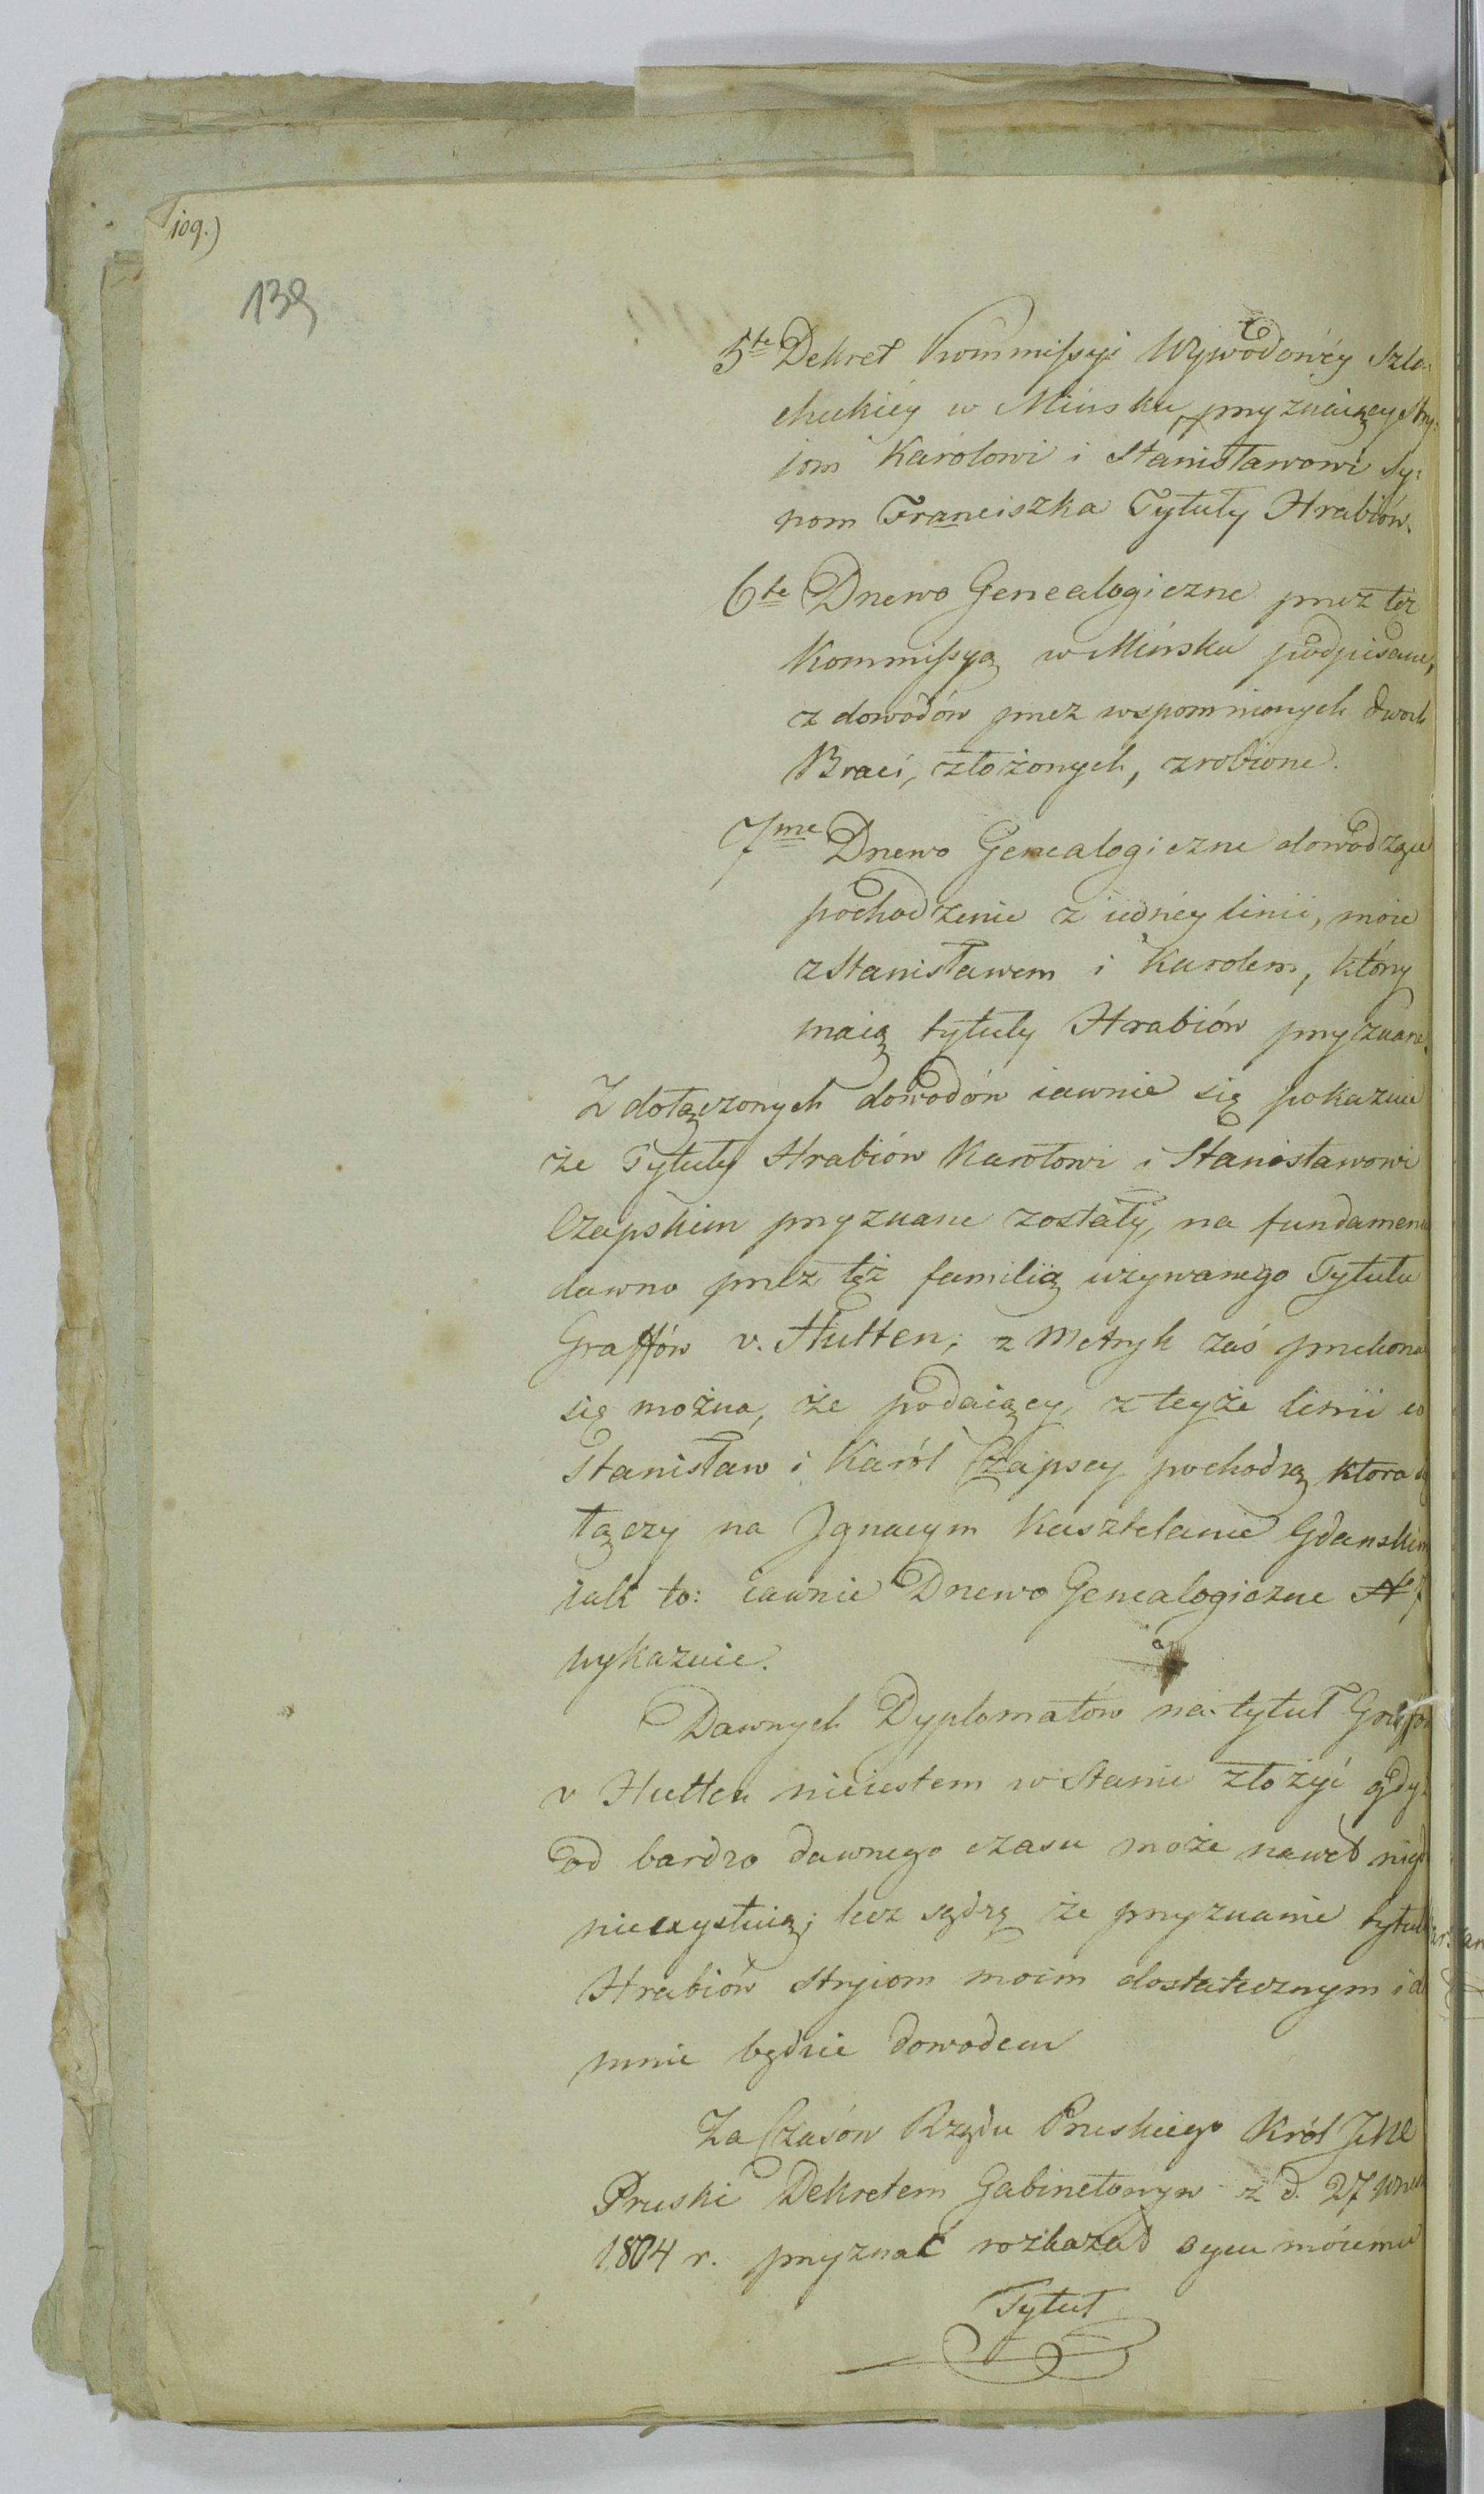 109.)
139
5te Dekret Kommissyi Wywodowéy Szla-
checkiéy w Mińsku, przyznaiący Stry-
iom Karolowi i Stanisławowi Sy-
nom Franciszka Tytuły Hrabiów.
6te Drzewo Genealogiczne przez tęż
Kommissyą w Mińsku podpisane,
z dowodów przez wspomnionych dwóch
Braci, złożonych, zrobione.
7me Drzewo Genealogiczne dowodzące
pochodzenie z iednéy linii, moie
z Stanisławem i Karolem, którzy
maią tytuły Hrabiów przyznane.
Z dołączonych dowodów iawnie się pokazuie
że Tytuły Hrabiów Karolowi i Stanisławowi
Czapskim przyznane zostały, na fundamen
dawno przez tęż familią używanego Tytułu
Graffów v. Hutten; z Metryk zaś przekona
się można, że podaiący, z teyże linii co
Stanisław i Karól Czapscy pochodzą ktora
łączy na Ignacym Kasztelanie Gdanskim
iak to: iawnie Drzewo Genealogiczne N 7
wykazuie.
Dawnych Dyplomatów na tytuł Graffów
v Hutten nieiestem w Stanie złożyć gdyż
od bardzo dawnego czasu może nawet
nieexystuią; lecz sądzę że przyznanie tytułu
Hrabiów Stryiom moim dostatecznym i d
mnie będzie dowodem
Za Czasów Rządu Pruskiego Król JMC
Pruski Dekretem Gabinetowym z d. 27 Wrze
1804 r. przyznać rozkazał oycu móiemu
Tytuł